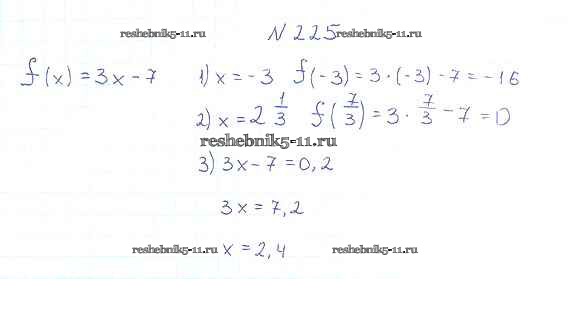 N 225
reshebnik5-11.ru reshebnik5-11.ru
f(x) = 3x - 7 1) x = -3 f(-3) = 3 · (-3) - 7 = -16
2) x = 2 1/3 f(7/3) = 3 · 7/3 - 7 = 0
reshebnik5-11.ru
3) 3x - 7 = 0,2
3x = 7,2
reshebnik5-11.ru x = 2,4 reshebnik5-11.ru